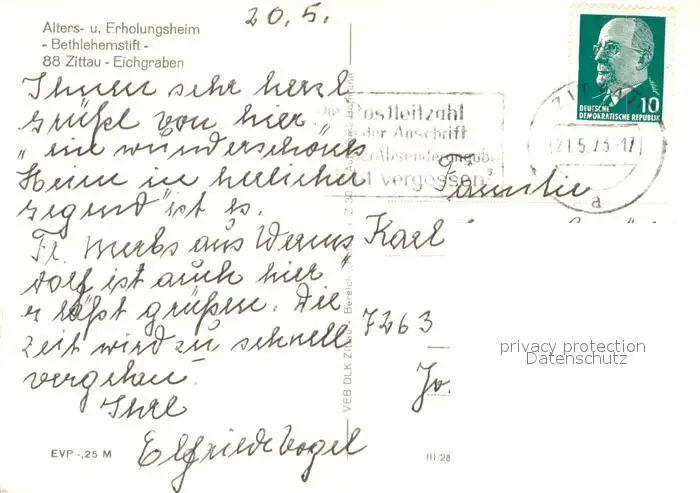 20.5.
Alters- u. Erholungsheim
- Bethlehemstift -
88 Zittau - Eichgraben
Ihnen sehr herzl
Grüße von hier
"ein wunderschönes
Heim in herrlicher
Gegend" ist es.
Fr. Merbs aus Werms
dorf ist auch hier
läßt grüßen. Die
Zeit wird zu schnell
vergehen.
Ihre
Elfriede Vogel
EVP -,25 M
VEB DLK Zittau - Bereich
Postleitzahl
der Anschrift
vergessen
DEUTSCHE
DEMOKRATISCHE REPUBLIK
10
ZITTAU
21.5.73-17
a
Familie
Karl
7263
privacy protection
Datenschutz
III/28